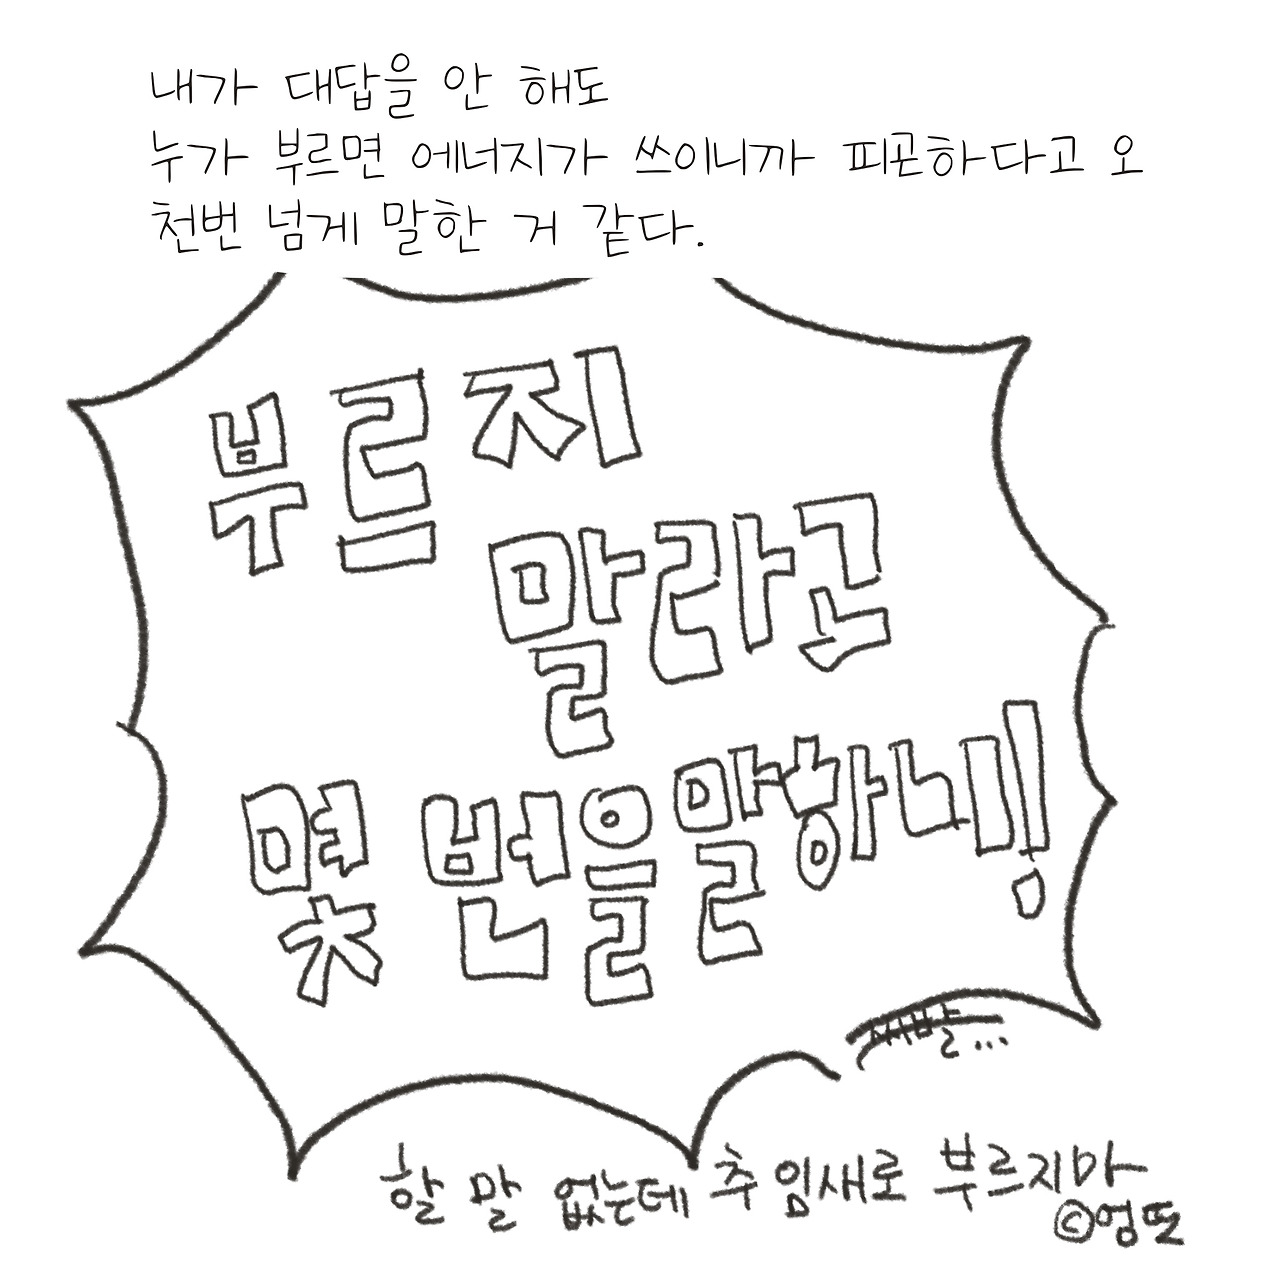 내가 대답을 안 해도
누가 부르면 에너지가 쓰이니까 피곤하다고 오
천번 넘게 말한 거 같다.
부르지
말라고
몇 번을 말하니!
할 말 없는데 추임새로 부르지마
©영또